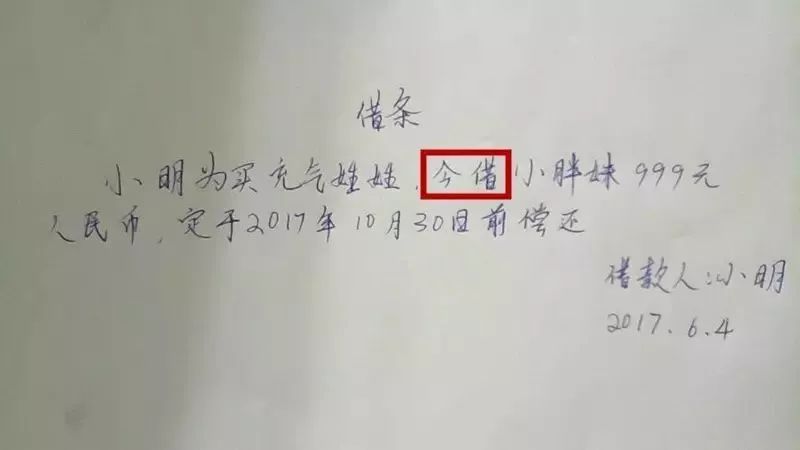 借条
小明为买充气娃娃,今借小胖妹999元
人民币,定于2017年10月30日前偿还
借款人:小明
2017.6.4